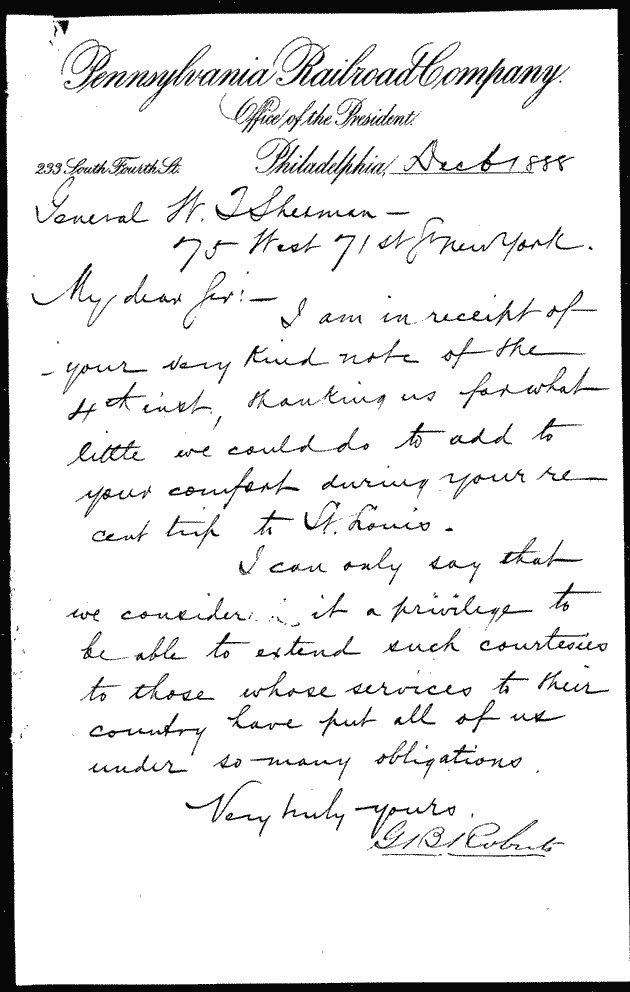 Pennsylvania Railroad Company.
Office of the President.
233 South Fourth St. Philadelphia, Dec 6 1888
General W. T Sherman —
75 West 71st St New York.
My dear Sir: —
I am in receipt of
your very kind note of the
4th inst, thanking us for what
little we could do to add to
your comfort during your re
cent trip to St. Louis.
I can only say that
we consider it a privilege to
be able to extend such courtesies
to those whose services to their
country have put all of us
under so many obligations.
Very truly yours.
G B Roberts